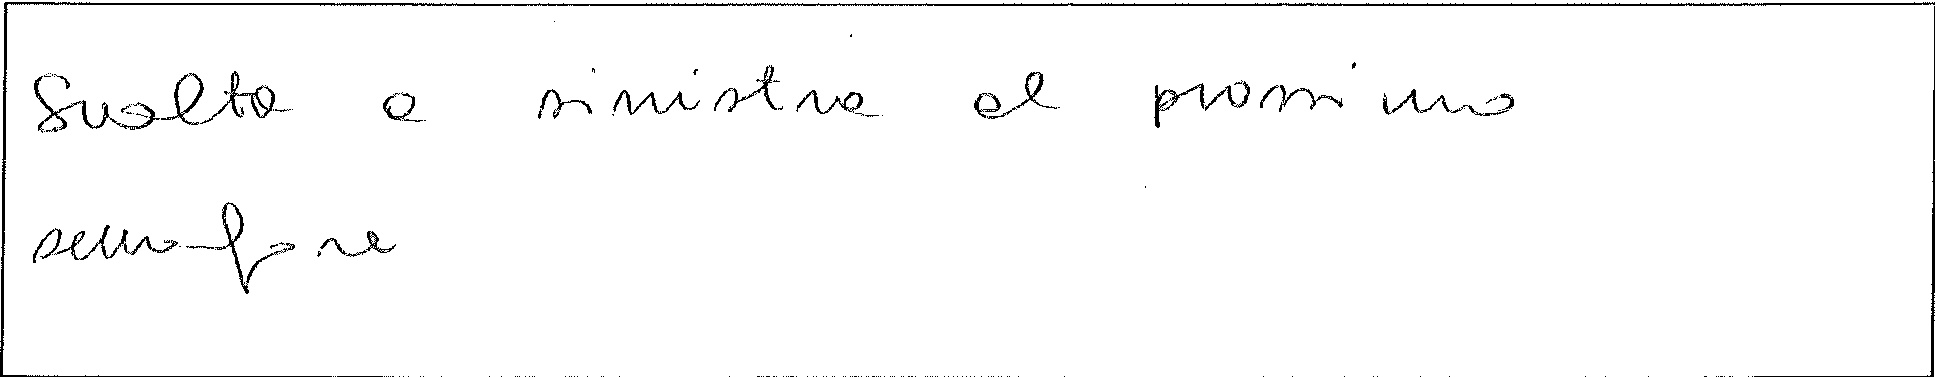 Svolta a sinistra al prossimo
semafore